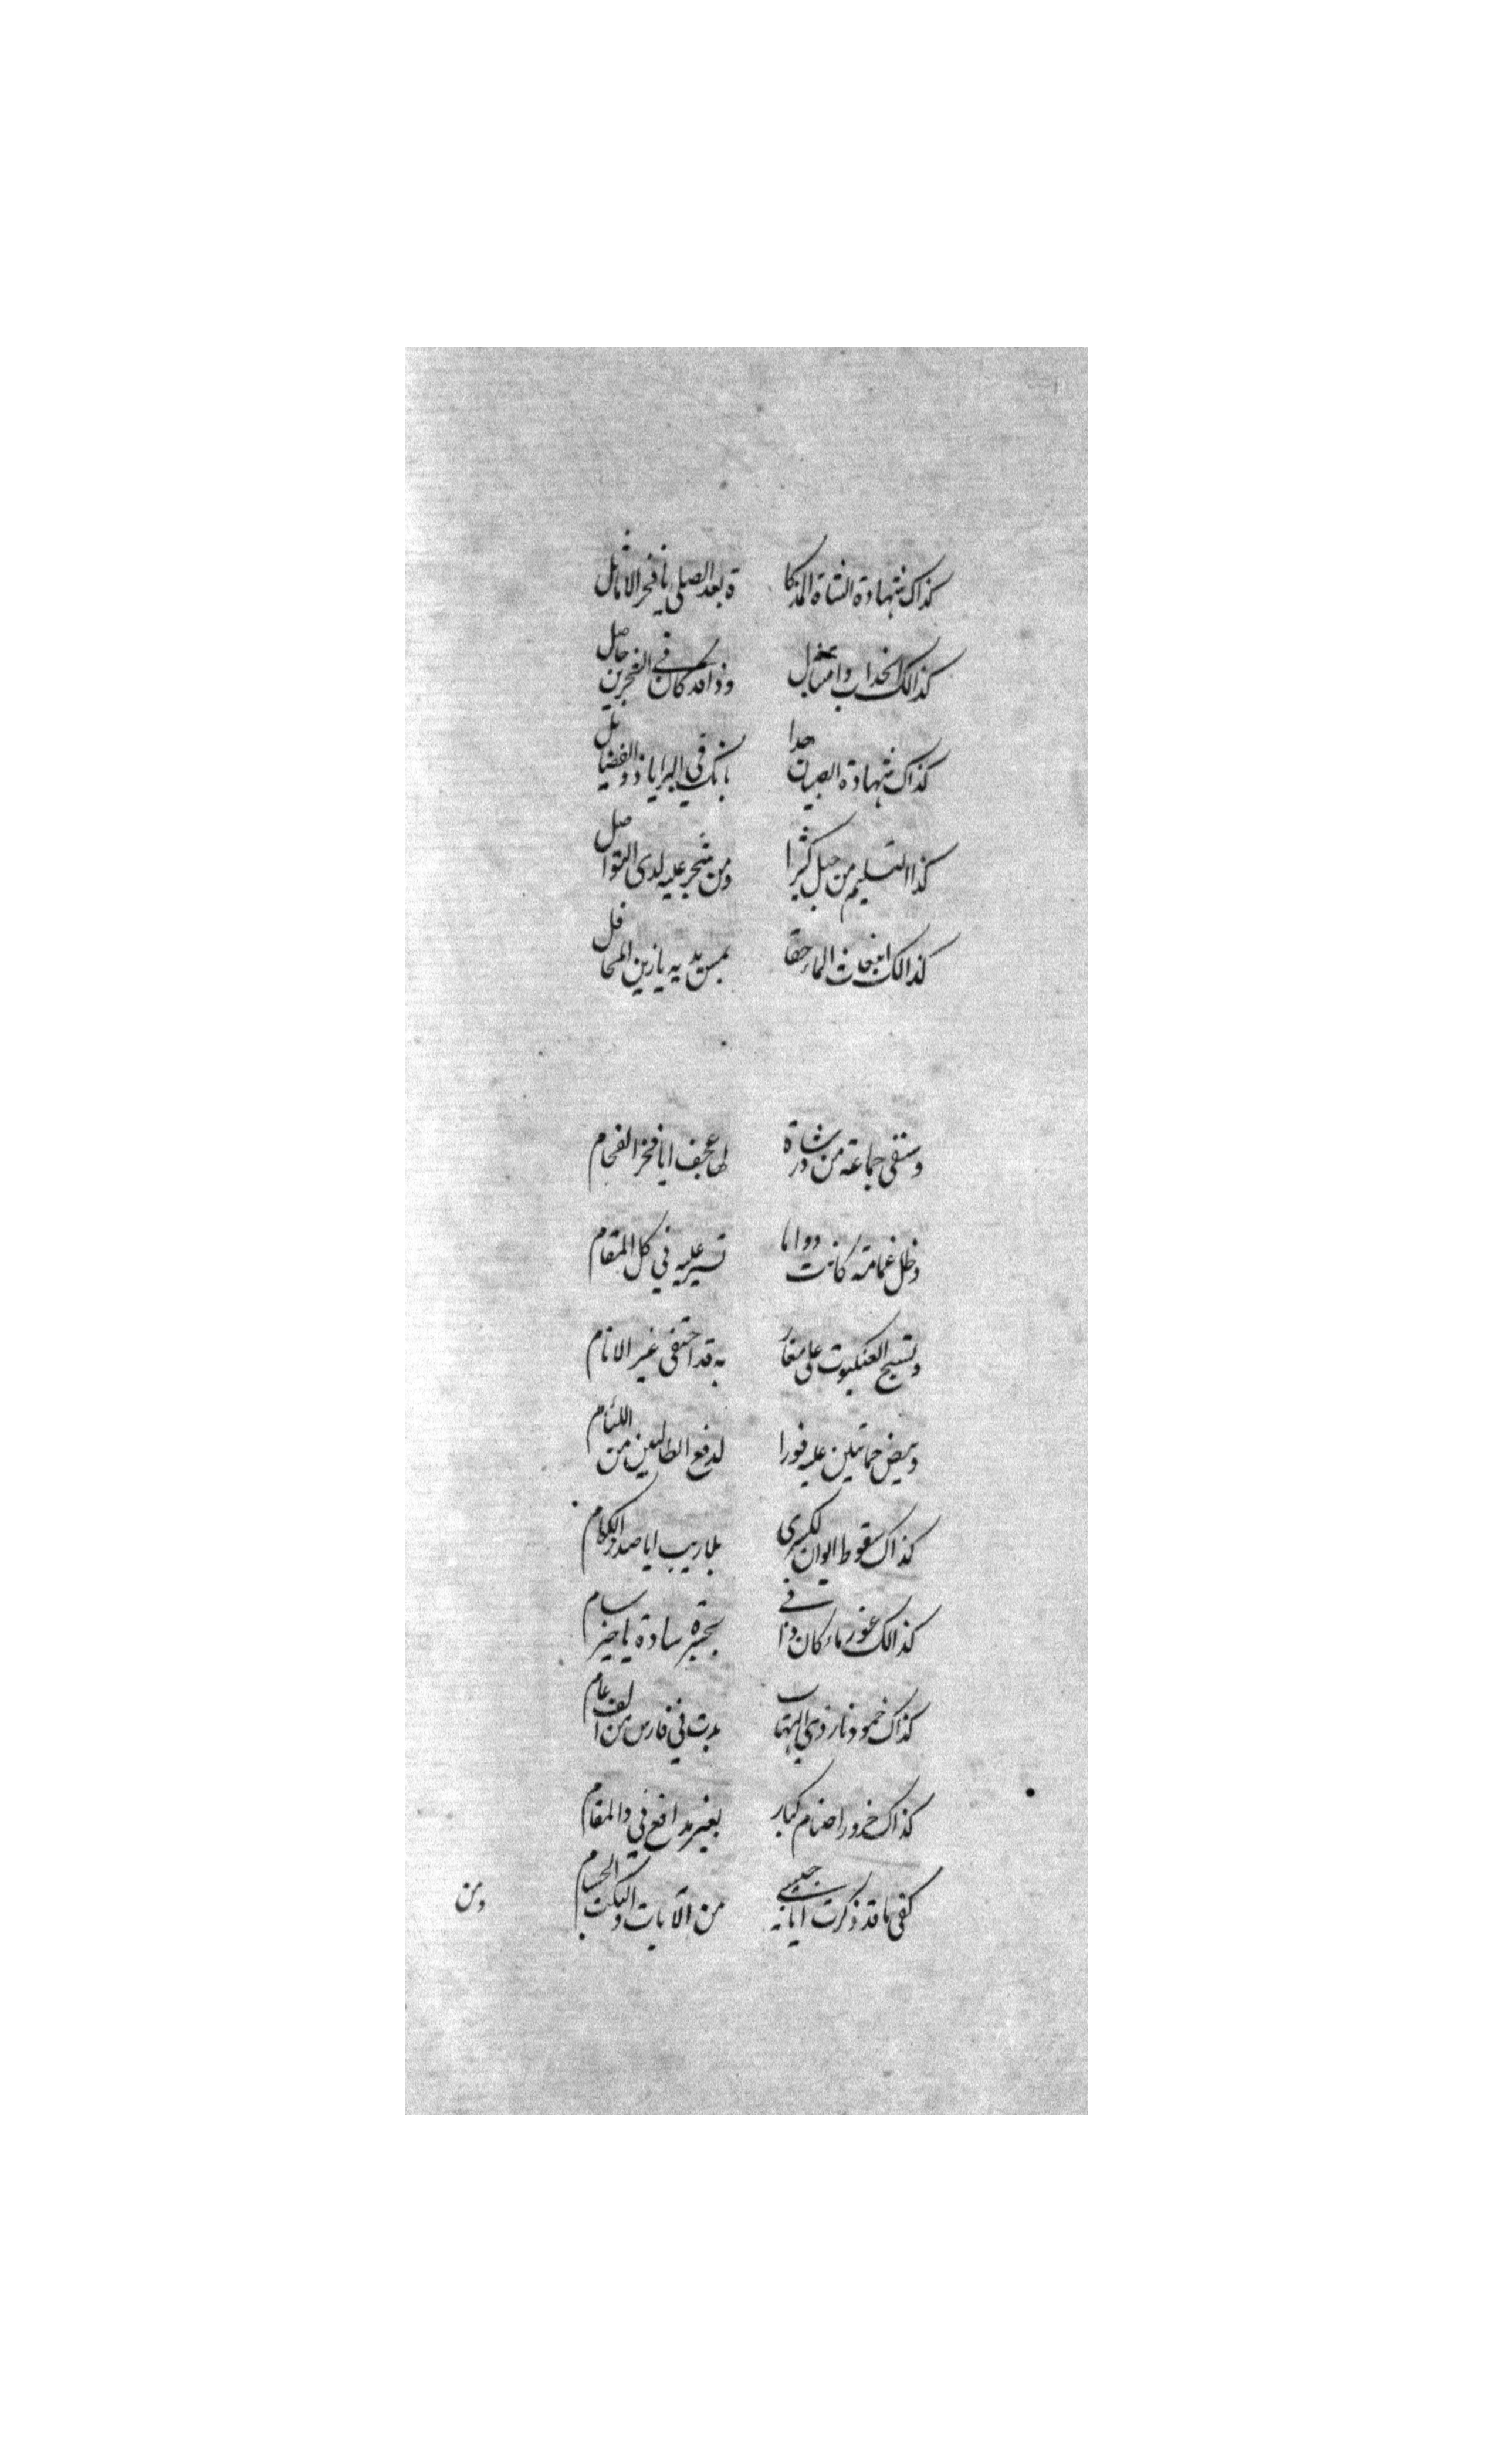 كذاك شهادة الشاة المذكا ة بعد الصلي يا فخر الاماثل
كذالك انجذاب وامتثال وذا قد كان في الشجرين حاصل
كذاك شهادة الصبيان جدا بانك في البرايا ذو الفضايل
كذا التسليم من جبل كثيرا ومن شجر عليه لدى التواصل
كذالك انبعاث الماء حقا بمس يديه يا زين المحافل
وسقى جماعة من در شاة لها عجف ايا فخر الفخام
وظل غمامة كانت دواما تسير عليه في كل المقام
ونسج العنكبوت على مغار به قد اختفى خير الانام
وبيض حمامتين عليه فورا لدفع الطالبين من اللئام
كذاك سقوط ايوان لكسرى بلا ريب ايا صدر الكرام
كذالك غور ماء كان ذا في بحيرة ساوة يا خير سام
كذاك خمود نار ذي التهاب بدت في فارس من الف عام
كذاك خرور اصنام كبار بغير مدافع في ذا المقام
كفى ما قد ذكرت ايا نجيبي من الآيات والنكت الجسام
ومن